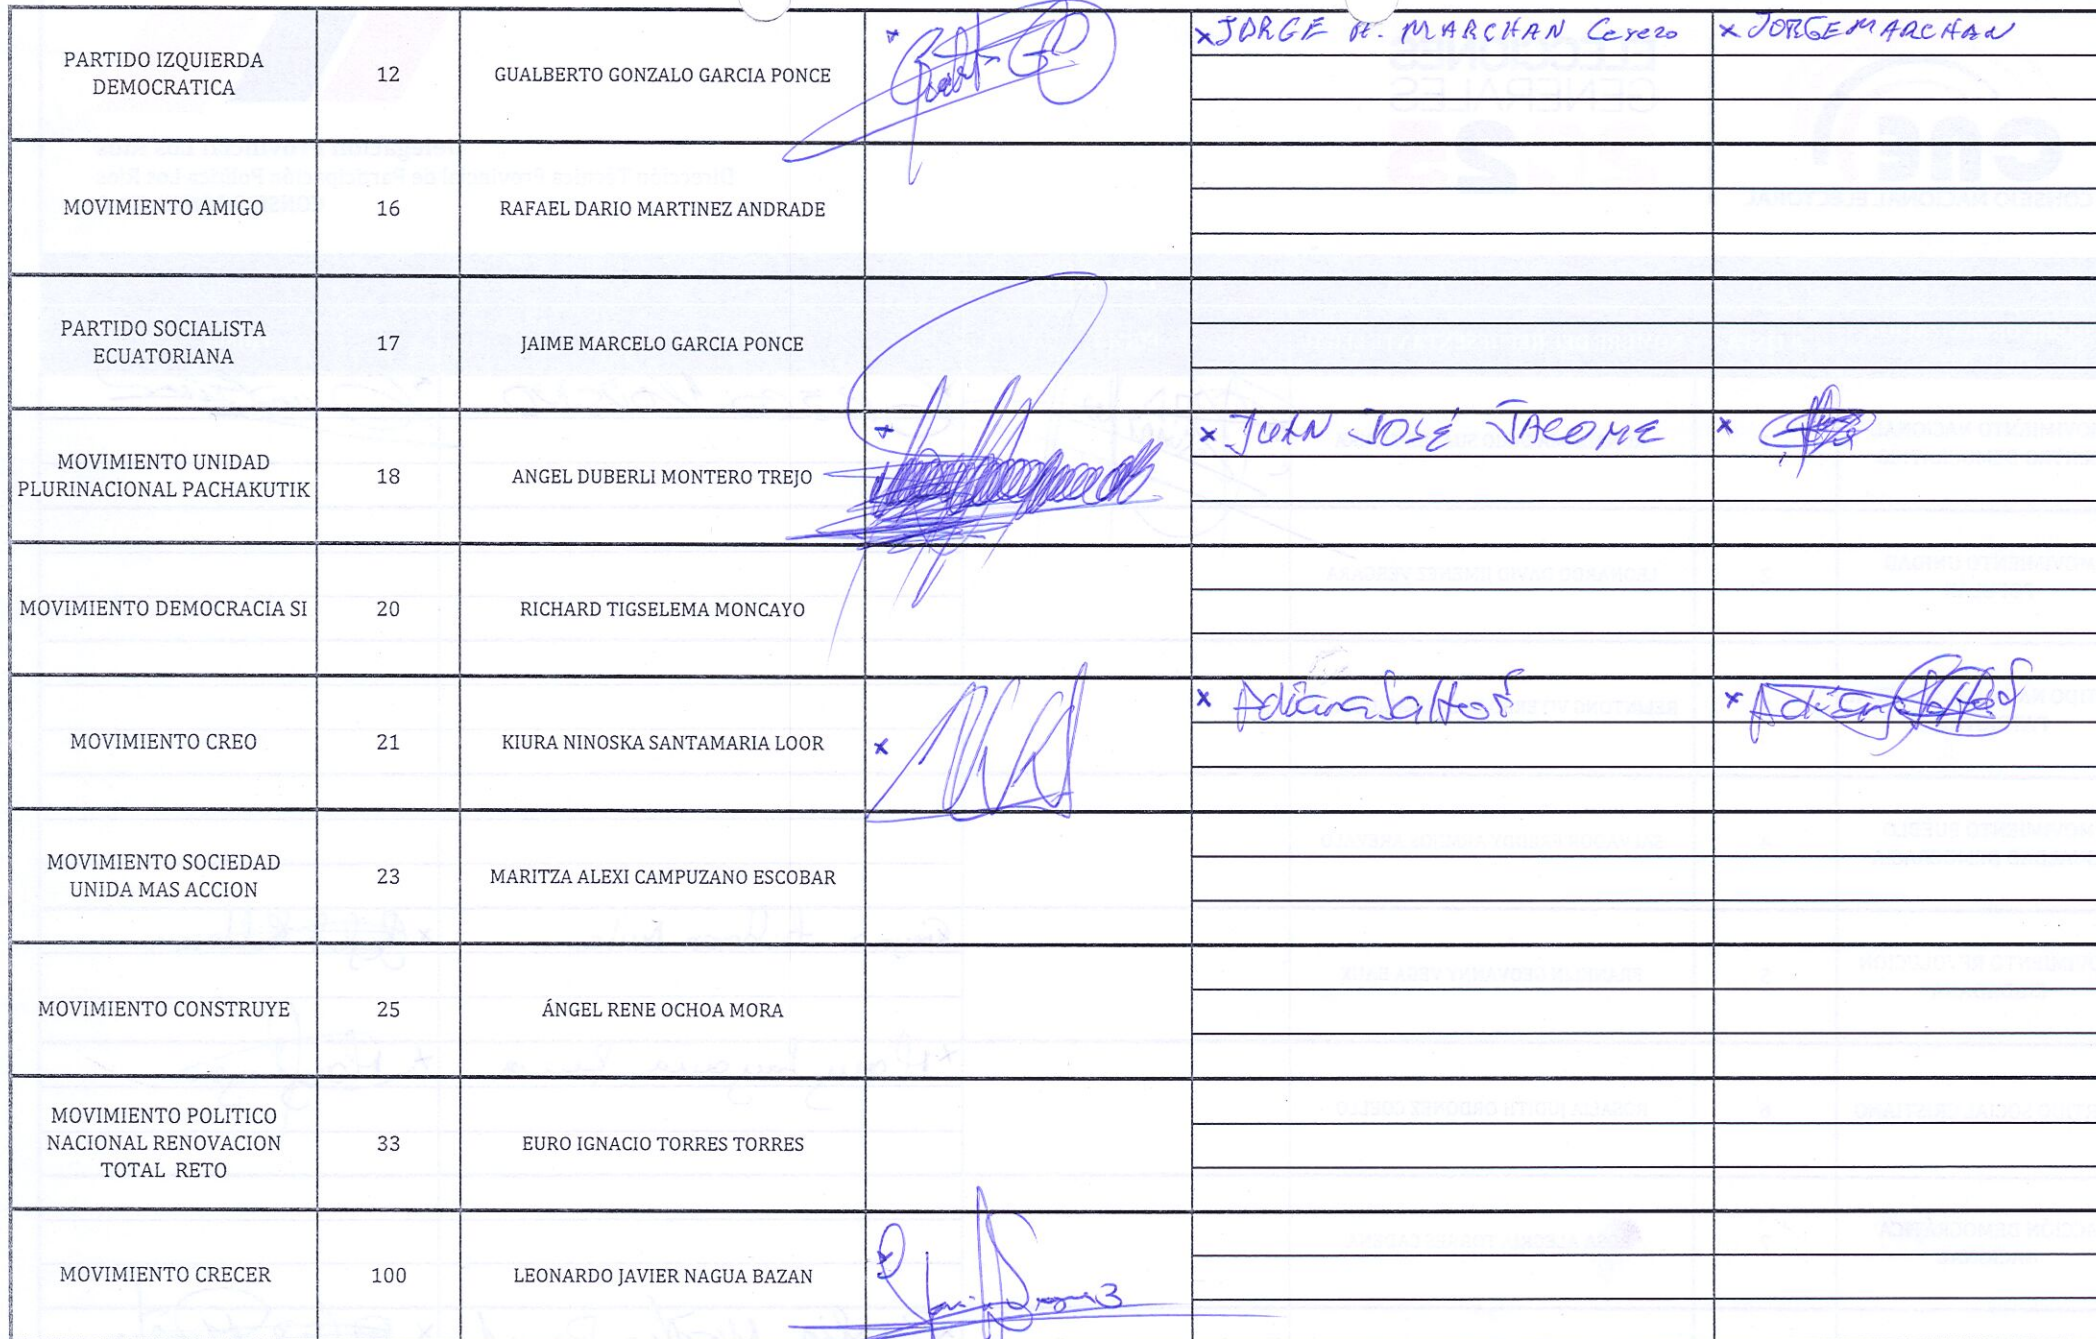 PARTIDO IZQUIERDA
DEMOCRATICA
12
GUALBERTO GONZALO GARCIA PONCE
x JORGE H. MARCHAN Cerezo
x JORGE MARCHAN
MOVIMIENTO AMIGO
16
RAFAEL DARIO MARTINEZ ANDRADE
PARTIDO SOCIALISTA
ECUATORIANA
17
JAIME MARCELO GARCIA PONCE
MOVIMIENTO UNIDAD
PLURINACIONAL PACHAKUTIK
18
ANGEL DUBERLI MONTERO TREJO
x JUAN JOSÉ JACOME
x
MOVIMIENTO DEMOCRACIA SI
20
RICHARD TIGSELEMA MONCAYO
MOVIMIENTO CREO
21
KIURA NINOSKA SANTAMARIA LOOR
x
x Adiana Saltos
x
MOVIMIENTO SOCIEDAD
UNIDA MAS ACCION
23
MARITZA ALEXI CAMPUZANO ESCOBAR
MOVIMIENTO CONSTRUYE
25
ÁNGEL RENE OCHOA MORA
MOVIMIENTO POLITICO
NACIONAL RENOVACION
TOTAL RETO
33
EURO IGNACIO TORRES TORRES
MOVIMIENTO CRECER
100
LEONARDO JAVIER NAGUA BAZAN